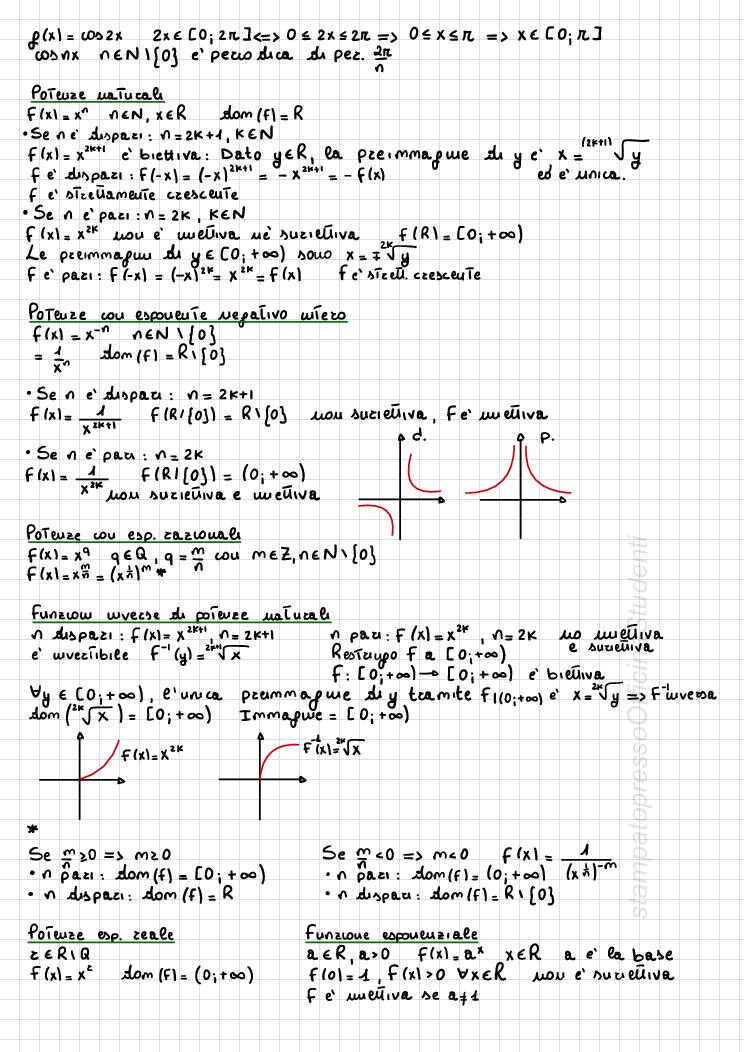 f(x) = cos2x 2x ∈ [0; 2π] <=> 0 ≤ 2x ≤ 2π => 0 ≤ x ≤ π => x ∈ [0; π]
cosnx n∈N\{0} e' periodica di per. 2π/n
Potenze naturali
f(x) = xⁿ n∈N, x∈R dom(f) = R
• Se n e' dispari: n = 2k+1, k∈N
f(x) = x^(2k+1) e' biettiva: Dato y∈R, la preimmagine di y e' x = ^(2k+1)√y
f e' dispari: f(-x) = (-x)^(2k+1) = -x^(2k+1) = -f(x) ed e' unica.
f e' strettamente crescente
• Se n e' pari: n = 2k, k∈N
f(x) = x^(2k) non e' iniettiva ne' suriettiva f(R) = [0; +∞)
Le preimmagini di y ∈ [0; +∞) sono x = ∓ ^(2k)√y
f e' pari: f(-x) = (-x)^(2k) = x^(2k) = f(x) f e' strett. crescente
Potenze con esponente negativo intero
f(x) = x⁻ⁿ n∈N\{0}
= 1/xⁿ dom(f) = R\{0}
• Se n e' dispari: n = 2k+1
f(x) = 1/x^(2k+1) f(R/{0}) = R\{0} non suriettiva, f e' iniettiva
d. p.
• Se n e' pari: n = 2k
f(x) = 1/x^(2k) f(R/{0}) = (0; +∞)
non suriettiva e iniettiva
Potenze con esp. razionali
f(x) = x^q q∈Q, q = m/n con m∈Z, n∈N\{0}
f(x) = x^(m/n) = (x^(1/n))^m *
Funzioni inverse di potenze naturali
n dispari: f(x) = x^(2k+1), n = 2k+1 n pari: f(x) = x^(2k), n = 2k no iniettiva e suriettiva
e' invertibile f⁻¹(y) = ^(2k+1)√x Restringo f a [0; +∞)
f: [0; +∞) → [0; +∞) e' biettiva
∀y ∈ [0; +∞), l'unica preimmagine di y tramite f|(0;+∞) e' x = ^(2k)√y => f⁻¹ inversa
dom(^(2k)√x) = [0; +∞) Immagine = [0; +∞)
f(x) = x^(2k) f⁻¹(x) = ^(2k)√x
*
Se m/n ≥ 0 => m ≥ 0 Se m/n < 0 => m < 0 f(x) = 1/(x^(1/n))^(-m)
• n pari: dom(f) = [0; +∞) • n pari: dom(f) = (0; +∞)
• n dispari: dom(f) = R • n dispari: dom(f) = R\{0}
Potenze esp. reale Funzione esponenziale
r∈R\Q a∈R, a>0 f(x) = a^x x∈R a e' la base
f(x) = x^r dom(f) = (0; +∞) f(0) = 1, f(x) > 0 ∀x∈R non e' suriettiva
f e' iniettiva se a≠1